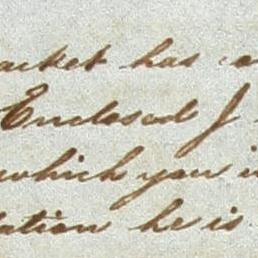 acket has a
Enclosed I
which you i
lation he is